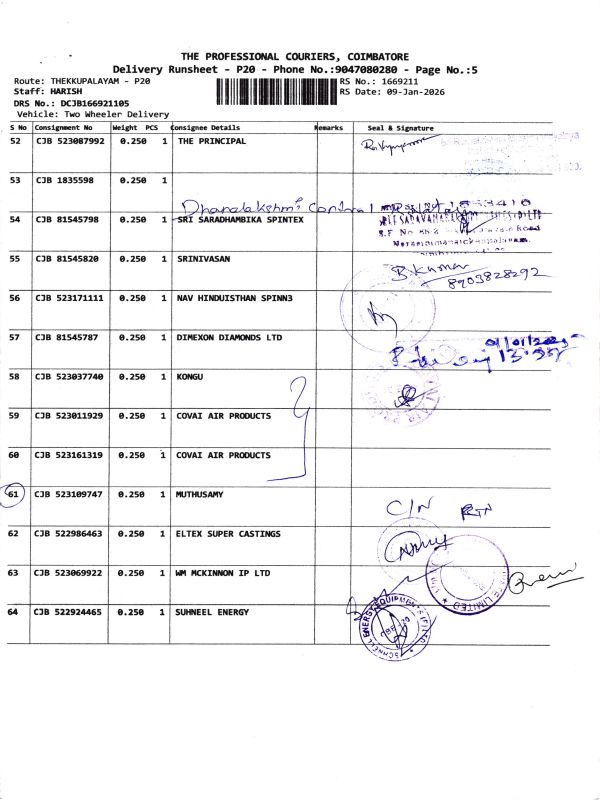 THE PROFESSIONAL COURIERS, COIMBATORE
Delivery Runsheet - P20 - Phone No.:9047080280 - Page No.:5
Route: THEKKUPALAYAM - P20 RS No.: 1669211
Staff: HARISH RS Date: 09-Jan-2026
DRS No.: DCJB166921105
Vehicle: Two Wheeler Delivery
S No Consignment No Weight PCS Consignee Details Remarks Seal & Signature
52 CJB 523087992 0.250 1 THE PRINCIPAL
53 CJB 1835598 0.250 1
Dhanalakshmi
54 CJB 81545798 0.250 1 SRI SARADHAMBIKA SPINTEX
55 CJB 81545820 0.250 1 SRINIVASAN B. Kumar
8903828292
56 CJB 523171111 0.250 1 NAV HINDUISTHAN SPINN3
57 CJB 81545787 0.250 1 DIMEXON DIAMONDS LTD
58 CJB 523037740 0.250 1 KONGU
59 CJB 523011929 0.250 1 COVAI AIR PRODUCTS
60 CJB 523161319 0.250 1 COVAI AIR PRODUCTS
61 CJB 523109747 0.250 1 MUTHUSAMY C/N RTN
62 CJB 522986463 0.250 1 ELTEX SUPER CASTINGS
63 CJB 523069922 0.250 1 WM MCKINNON IP LTD
64 CJB 522924465 0.250 1 SUHNEEL ENERGY